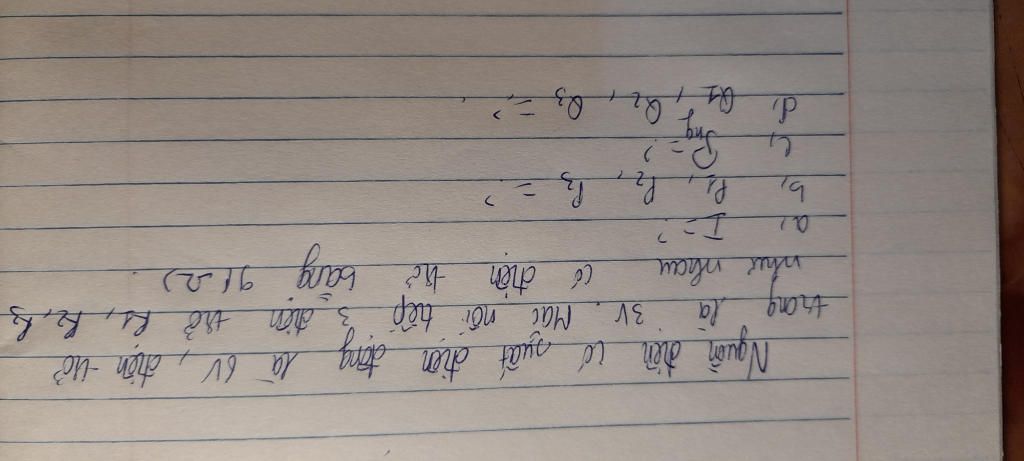 Nguồn điện có suất điện động là 6V, điện trở
trong là 3V. Mắc nối tiếp 3 điện trở R1, R2, R3
như nhau có điện trở bằng 9(Ω).
a, I = ?
b, P1, P2, P3 = ?
c, Png = ?
d, Q1, Q2, Q3 = ?